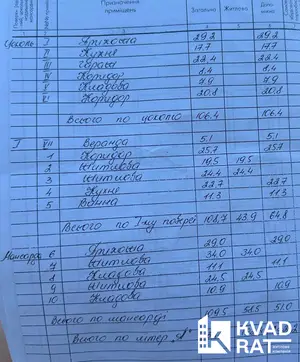 Призначення
приміщень
Загальна
Житлова
1 2 3 4 5 6
Цоколь I Прихожа 29.2 29.2
II Кухня 17.7 17.7
III Гараж 22.4 22.4
IV Коридор 8.4 8.4
V Кладова 7.9 7.9
VI Коридор 20.8 20.8
Всього по цоколю 106.4 106.4
I VII Веранда 5.1 5.1
1 Коридор 25.7 25.7
2 Житлова 19.5 19.5
3 Житлова 24.4 24.4
4 Кухня 22.7 22.7
5 Ванна 11.3 11.3
Всього по I-му поверсі 108.7 43.9 64.8
Мансарда 6 Прихожа 29.0 29.0
7 Житлова 34.0 34.0
8 Кладова 11.1 11.1
9 Житлова 24.5 24.5
10 Кладова 10.9 10.9
Всього по мансарді 109.5 51.0
Всього по літер „А"
KVAD
RAT